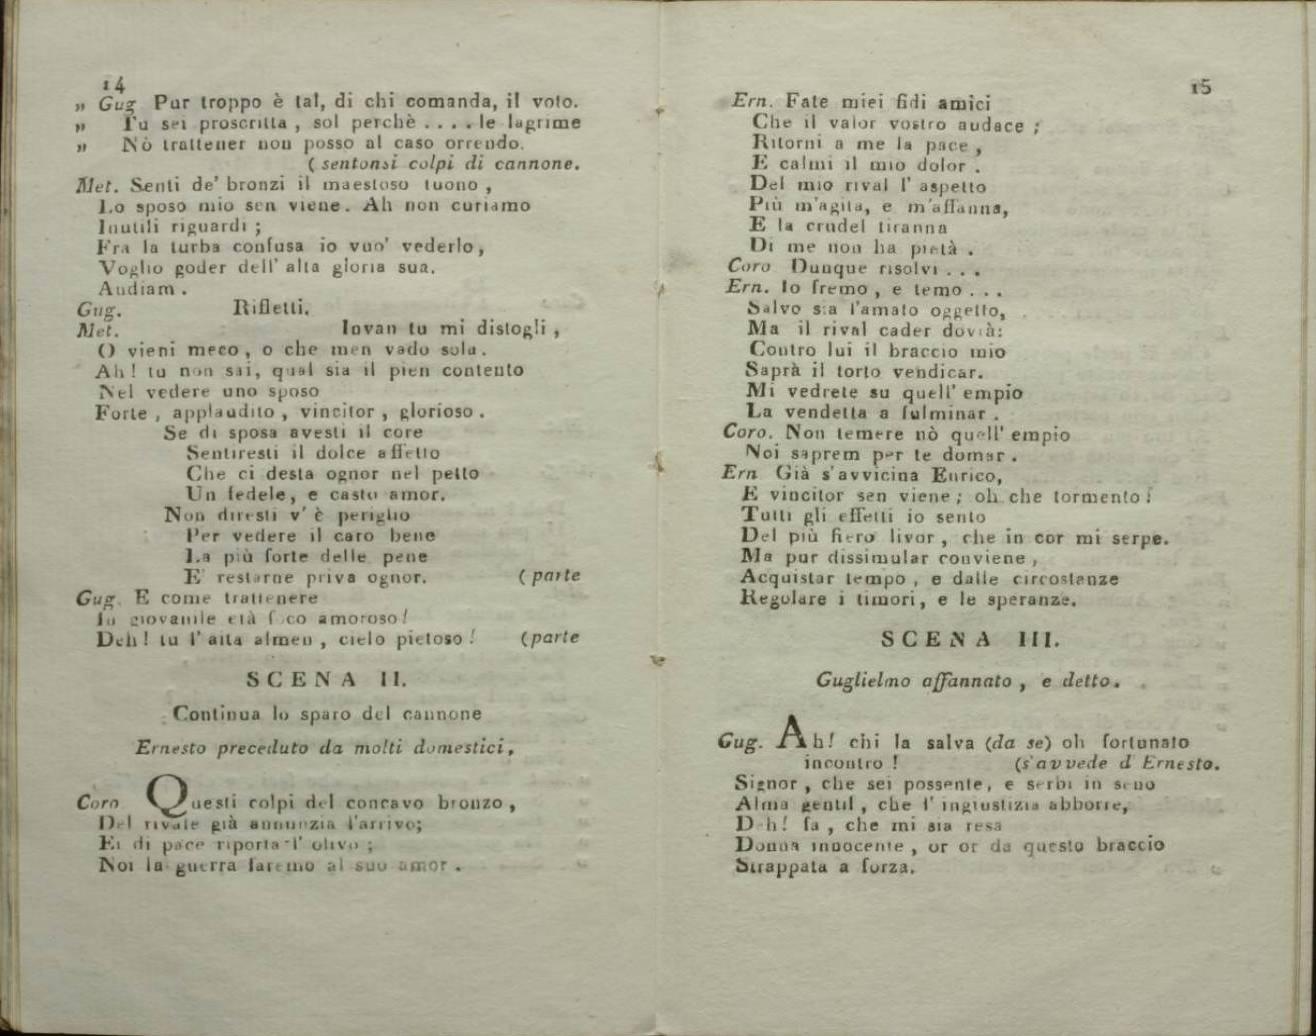 14
„ Gug Pur troppo è tal, di chi comanda, il voto.
„ Tu sei proscritta, sol perchè .... le lagrime
„ Nò trattener non posso al caso orrendo.
( sentonsi colpi di cannone.
Met. Senti de' bronzi il maestoso tuono,
Lo sposo mio sen viene. Ah non curiamo
Inutili riguardi;
Fra la turba confusa io vuo' vederlo,
Voglio goder dell' alta gloria sua.
Andiam.
Gug. Rifletti.
Met. Invan tu mi distogli,
O vieni meco, o che men vado sola.
Ah! tu non sai, qual sia il pien contento
Nel vedere uno sposo
Forte, applaudito, vincitor, glorioso.
Se di sposa avesti il core
Sentiresti il dolce affetto
Che ci desta ognor nel petto
Un fedele, e casto amor.
Non diresti v' è periglio
Per vedere il caro bene
La più forte delle pene
E' restarne priva ognor. ( parte
Gug. E come trattenere
In giovanile età foco amoroso!
Deh! tu l' aita almen, cielo pietoso! (parte
SCENA II.
Continua lo sparo del cannone
Ernesto preceduto da molti domestici,
Coro Questi colpi del concavo bronzo,
Del rivale già annunzia l'arrivo;
Ei di pace riporta l' olivo;
Noi la guerra faremo al suo amor.
15
Ern. Fate miei fidi amici
Che il valor vostro audace;
Ritorni a me la pace,
E calmi il mio dolor.
Del mio rival l' aspetto
Più m'agita, e m'affanna,
E la crudel tiranna
Di me non ha pietà.
Coro Dunque risolvi ...
Ern. Io fremo, e temo ...
Salvo sia l'amato oggetto,
Ma il rival cader dovrà:
Contro lui il braccio mio
Saprà il torto vendicar.
Mi vedrete su quell' empio
La vendetta a fulminar.
Coro. Non temere nò quell' empio
Noi saprem per te domar.
Ern Già s'avvicina Enrico,
E vincitor sen viene; oh che tormento!
Tutti gli effetti io sento
Del più fiero livor, che in cor mi serpe.
Ma pur dissimular conviene,
Acquistar tempo, e dalle circostanze
Regolare i timori, e le speranze.
SCENA III.
Guglielmo affannato, e detto.
Gug. Ah! chi la salva (da se) oh fortunato
incontro! (s'avvede d'Ernesto.
Signor, che sei possente, e serbi in seno
Alma gentil, che l' ingiustizia abborre,
Deh! fa, che mi sia resa
Donna innocente, or or da questo braccio
Strappata a forza.